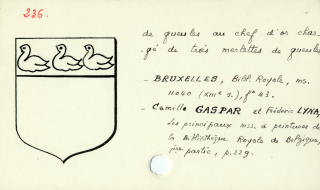 236.
de gueules au chef d'or char-
gé de trois merlettes de gueules
- BRUXELLES, Bibl. Royale, ms.
11040 (XIIIe s.), f° 43.
- Camille GASPAR et Frédéric LYNA,
Les principaux mss. à peintures de
la Bibliothèque Royale de Belgique,
1ère partie, p. 229.